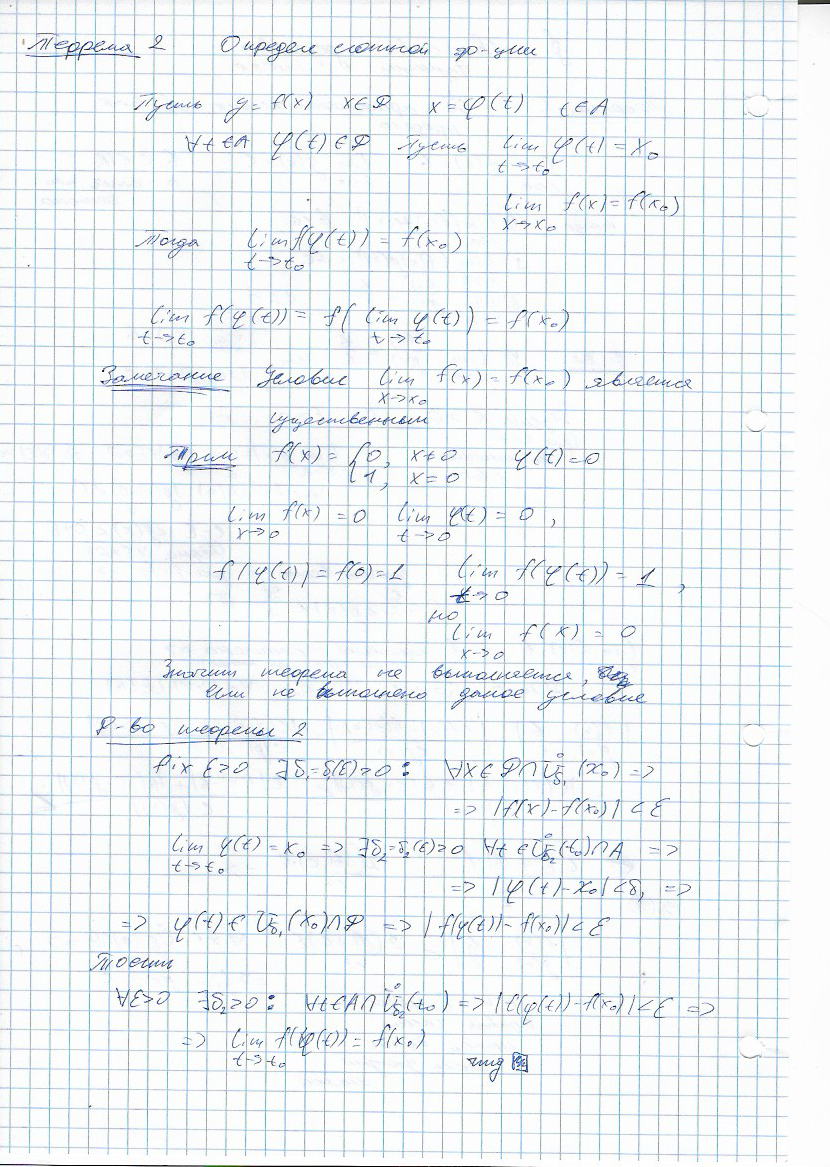 Теорема 2 Определ сложной ф-ции
Пусть y = f(x) x∈D x = φ(t) t∈A
∀t∈A φ(t)∈D Пусть lim t→t₀ φ(t) = x₀
lim x→x₀ f(x) = f(x₀)
Тогда lim t→t₀ f(φ(t)) = f(x₀)
lim t→t₀ f(φ(t)) = f( lim t→t₀ φ(t)) = f(x₀)
Замечание Условие lim x→x₀ f(x) = f(x₀) является
существенным
Прим f(x) = { 0, x≠0 φ(t)=0
1, x=0
lim x→0 f(x) = 0 lim t→0 φ(t) = 0 ,
f(φ(t)) = f(0) = 1 lim t→0 f(φ(t)) = 1 ,
но
lim x→0 f(x) = 0
Значит теорема не выполняется,
если не выполнено даное условие
Д-во теоремы 2
fix ε>0 ∃δ₁=δ₁(ε)>0 : ∀x∈D∩Ů_δ₁(x₀) =>
=> |f(x)-f(x₀)| < ε
lim t→t₀ φ(t) = x₀ => ∃δ₂=δ₂(ε)>0 ∀t∈Ů_δ₂(t₀)∩A =>
=> |φ(t)-x₀|<δ₁ =>
=> φ(t)∈U_δ₁(x₀)∩D => |f(φ(t)) - f(x₀)|<ε
Тоесть
∀ε>0 ∃δ₂>0 : ∀t∈A∩Ů_δ₂(t₀) => |f(φ(t))-f(x₀)|<ε =>
=> lim t→t₀ f(φ(t)) = f(x₀)
чтд